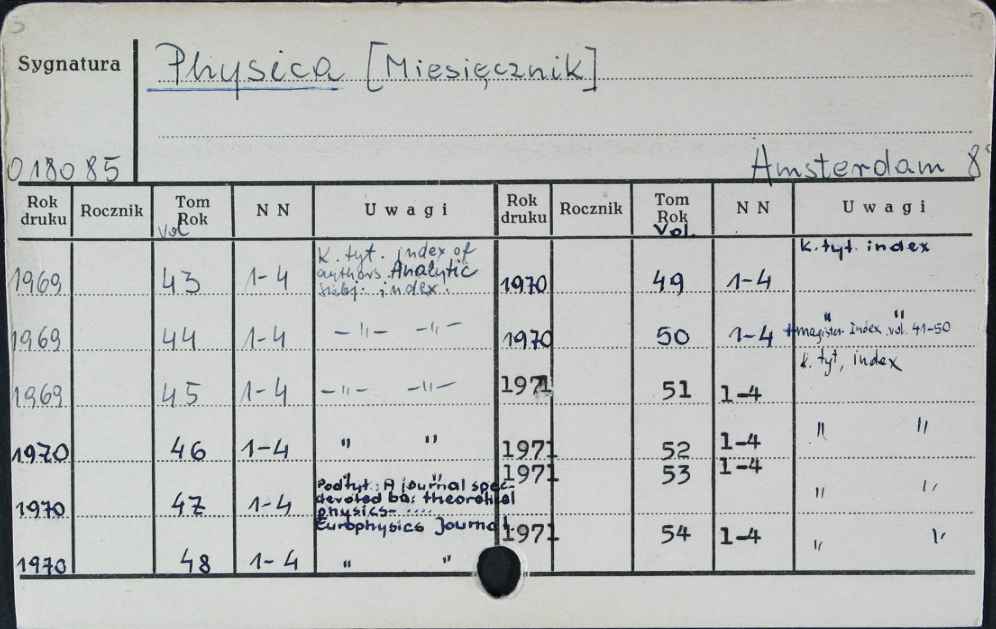 Sygnatura
Physica [Miesięcznik]
018085
Amsterdam 8°
Rok druku Rocznik Tom Rok Vol N N Uwagi Rok druku Rocznik Tom Rok Vol. N N Uwagi
1969 43 1-4 K. tyt. index of
authors. Analytic
index.
1970 49 1-4 K. tyt. index
1969 44 1-4 -"- -"-
1970 50 1-4 " "
Index vol. 41-50
1969 45 1-4 -"- -"-
1971 51 1-4 k. tyt, index
1970 46 1-4 " "
1971 52 1-4 " "
1970 47 1-4 " "
Podtyt.: A journal spec-
devoted theoretical
physics- ....
Europhysics Journal
1971 53 1-4 " "
1970 48 1-4 " "
1971 54 1-4 " "